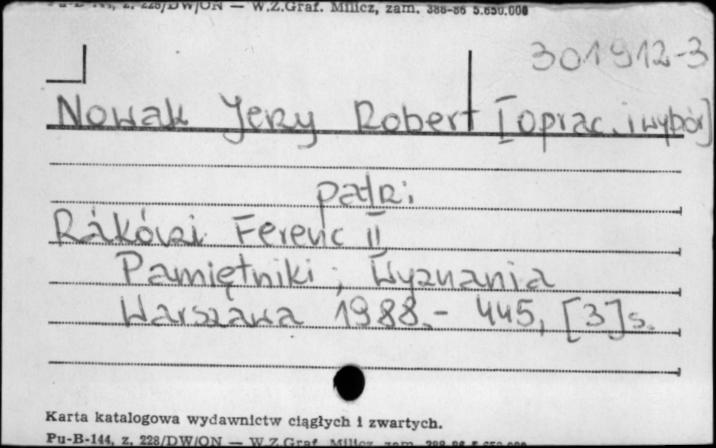 Pu-B-144, z. 228/DW/ON — W.Z.Graf. Milicz, zam. 388-86 5.650.000
301912-3
Nowak Jerzy Robert [oprac. i wybór]
patrz:
Rákóczi Ferenc II
Pamiętniki ; Wyznania
Warszawa 1988.- 445, [3]s.
Karta katalogowa wydawnictw ciągłych i zwartych.
Pu-B-144, z. 228/DW/ON — W.Z.Graf. Milicz, zam. 388-86 5.650.000